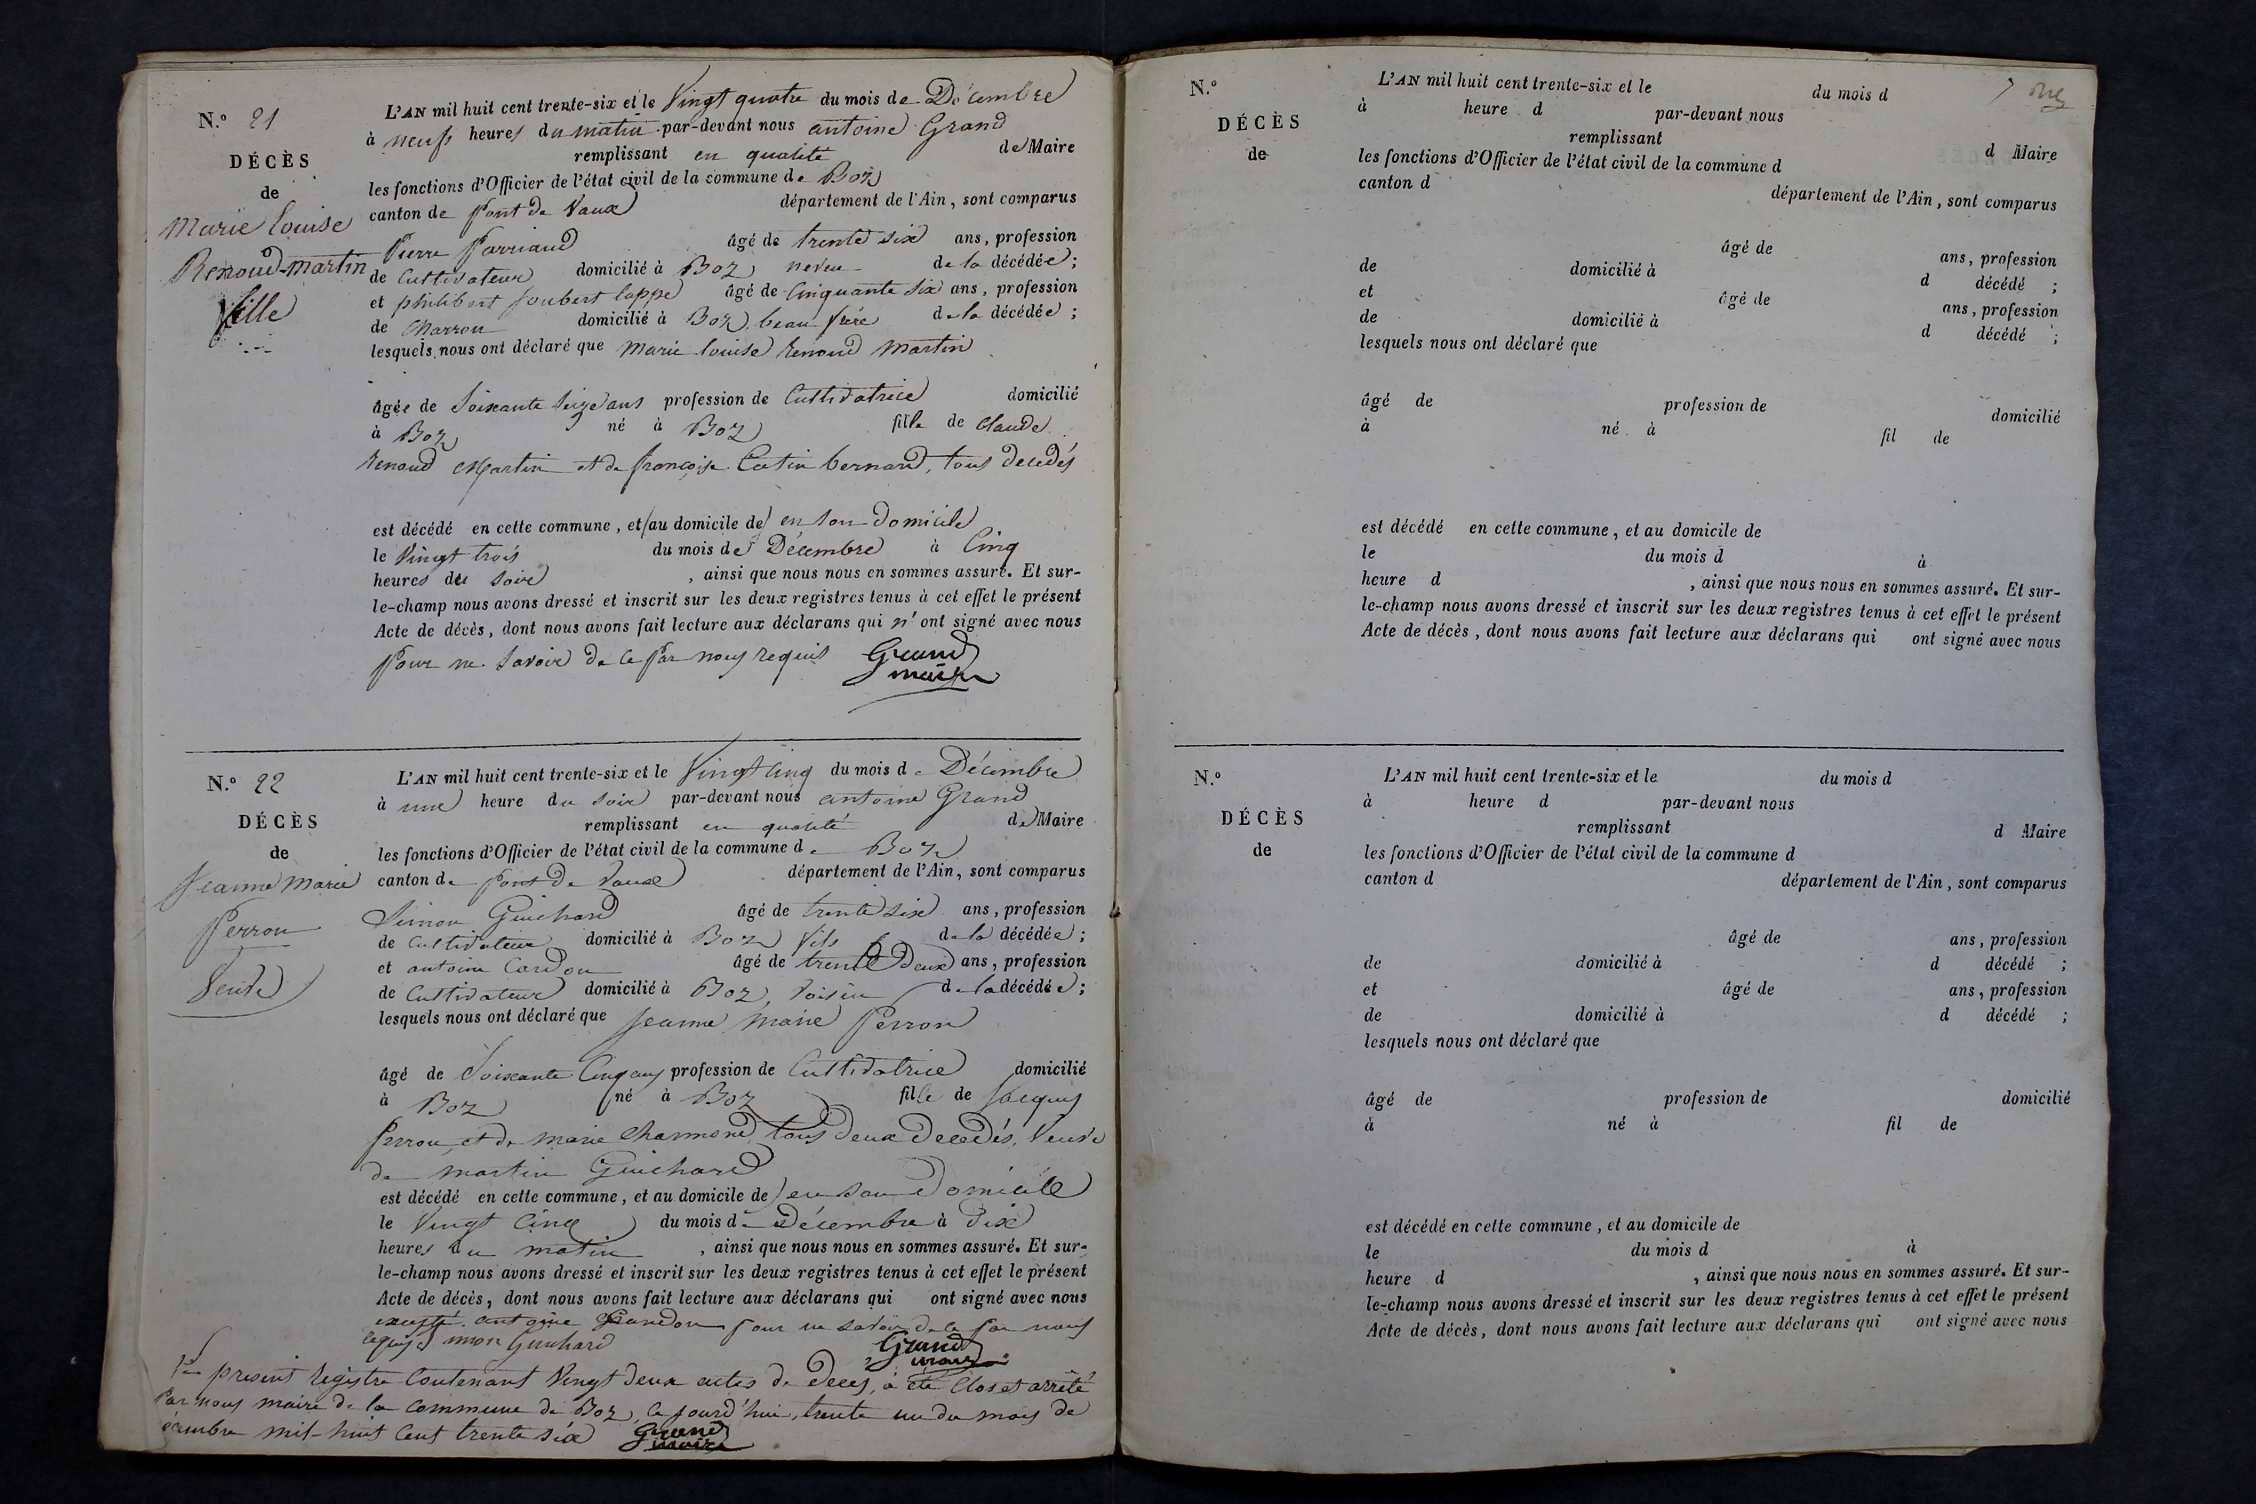 N.º 21
DÉCÈS
de
Marie Louise
Renoud-Martin
fille
L'AN mil huit cent trente-six et le Vingt quatre du mois de Décembre
à neuf heures du matin par-devant nous antoine Grand
remplissant en qualité de Maire
les fonctions d'Officier de l'état civil de la commune de Boz
canton de Pont de Vaux département de l'Ain, sont comparus
Pierre Parriaud âgé de trente six ans, profession
de Cultivateur domicilié à Boz neveu de la décédée;
et philibert Joubert lappe âgé de Cinquante six ans, profession
de Charron domicilié à Boz, beau frère de la décédée;
lesquels nous ont déclaré que Marie Louise Renoud Martin
âgée de Soixante Seize ans profession de Cultivatrice domicilié
à Boz né à Boz fille de Claude
Renoud Martin et de françoise Catin bernard, tous décédés
est décédé en cette commune, et au domicile de en son Domicile
le Vingt trois du mois de Décembre à Cinq
heures du Soir, ainsi que nous nous en sommes assuré. Et sur-
le-champ nous avons dressé et inscrit sur les deux registres tenus à cet effet le présent
Acte de décès, dont nous avons fait lecture aux déclarans qui n'ont signé avec nous
Pour ne Savoir de ce Par nous requis Grand
maire
N.º 22
DÉCÈS
de
Jeanne Marie
Perron
Veuve
L'AN mil huit cent trente-six et le Vingt cinq du mois de Décembre
à une heure du soir par-devant nous antoine Grand
remplissant en qualité de Maire
les fonctions d'Officier de l'état civil de la commune de Boz
canton de Pont de Vaux département de l'Ain, sont comparus
Simon Guichard âgé de trente six ans, profession
de Cultivateur domicilié à Boz fils de la décédée;
et antoine Cardon âgé de trente Deux ans, profession
de Cultivateur domicilié à Boz, Voisin de la décédée;
lesquels nous ont déclaré que Jeanne Marie Perron
âgé de Soixante Cinq ans profession de Cultivatrice domicilié
à Boz né à Boz fille de Jacques
Perron et de marie Charmond, tous deux Décédés, Veuve
de martin Guichard
est décédé en cette commune, et au domicile de en son Domicile
le Vingt Cinq du mois de Décembre à Dix
heures du matin, ainsi que nous nous en sommes assuré. Et sur-
le-champ nous avons dressé et inscrit sur les deux registres tenus à cet effet le présent
Acte de décès, dont nous avons fait lecture aux déclarans qui ont signé avec nous
excepté antoine pour ne savoir de ce par nous
requis Simon Guichard Grand
maire
Le présent Registre Contenant Vingt deux actes de Décès, a été Clos et arrêté
Par nous maire de la commune de Boz, ce jourd'hui, trente un du mois de
décembre mil-huit Cent trente six Grand
maire
N.º
DÉCÈS
de
L'AN mil huit cent trente-six et le du mois d
à heure d par-devant nous
remplissant
d Maire
les fonctions d'Officier de l'état civil de la commune d
canton d département de l'Ain, sont comparus
âgé de ans, profession
de domicilié à d décédé ;
et âgé de ans, profession
de domicilié à d décédé ;
lesquels nous ont déclaré que
âgé de profession de domicilié
à né à fil de
est décédé en cette commune, et au domicile de
le du mois d à
heure d , ainsi que nous nous en sommes assuré. Et sur-
le-champ nous avons dressé et inscrit sur les deux registres tenus à cet effet le présent
Acte de décès, dont nous avons fait lecture aux déclarans qui ont signé avec nous
N.º
DÉCÈS
de
L'AN mil huit cent trente-six et le du mois d
à heure d par-devant nous
remplissant d Maire
les fonctions d'Officier de l'état civil de la commune d
canton d département de l'Ain, sont comparus
âgé de ans, profession
de domicilié à d décédé ;
et âgé de ans, profession
de domicilié à d décédé ;
lesquels nous ont déclaré que
âgé de profession de domicilié
à né à fil de
est décédé en cette commune, et au domicile de
le du mois d à
heure d , ainsi que nous nous en sommes assuré. Et sur-
le-champ nous avons dressé et inscrit sur les deux registres tenus à cet effet le présent
Acte de décès, dont nous avons fait lecture aux déclarans qui ont signé avec nous